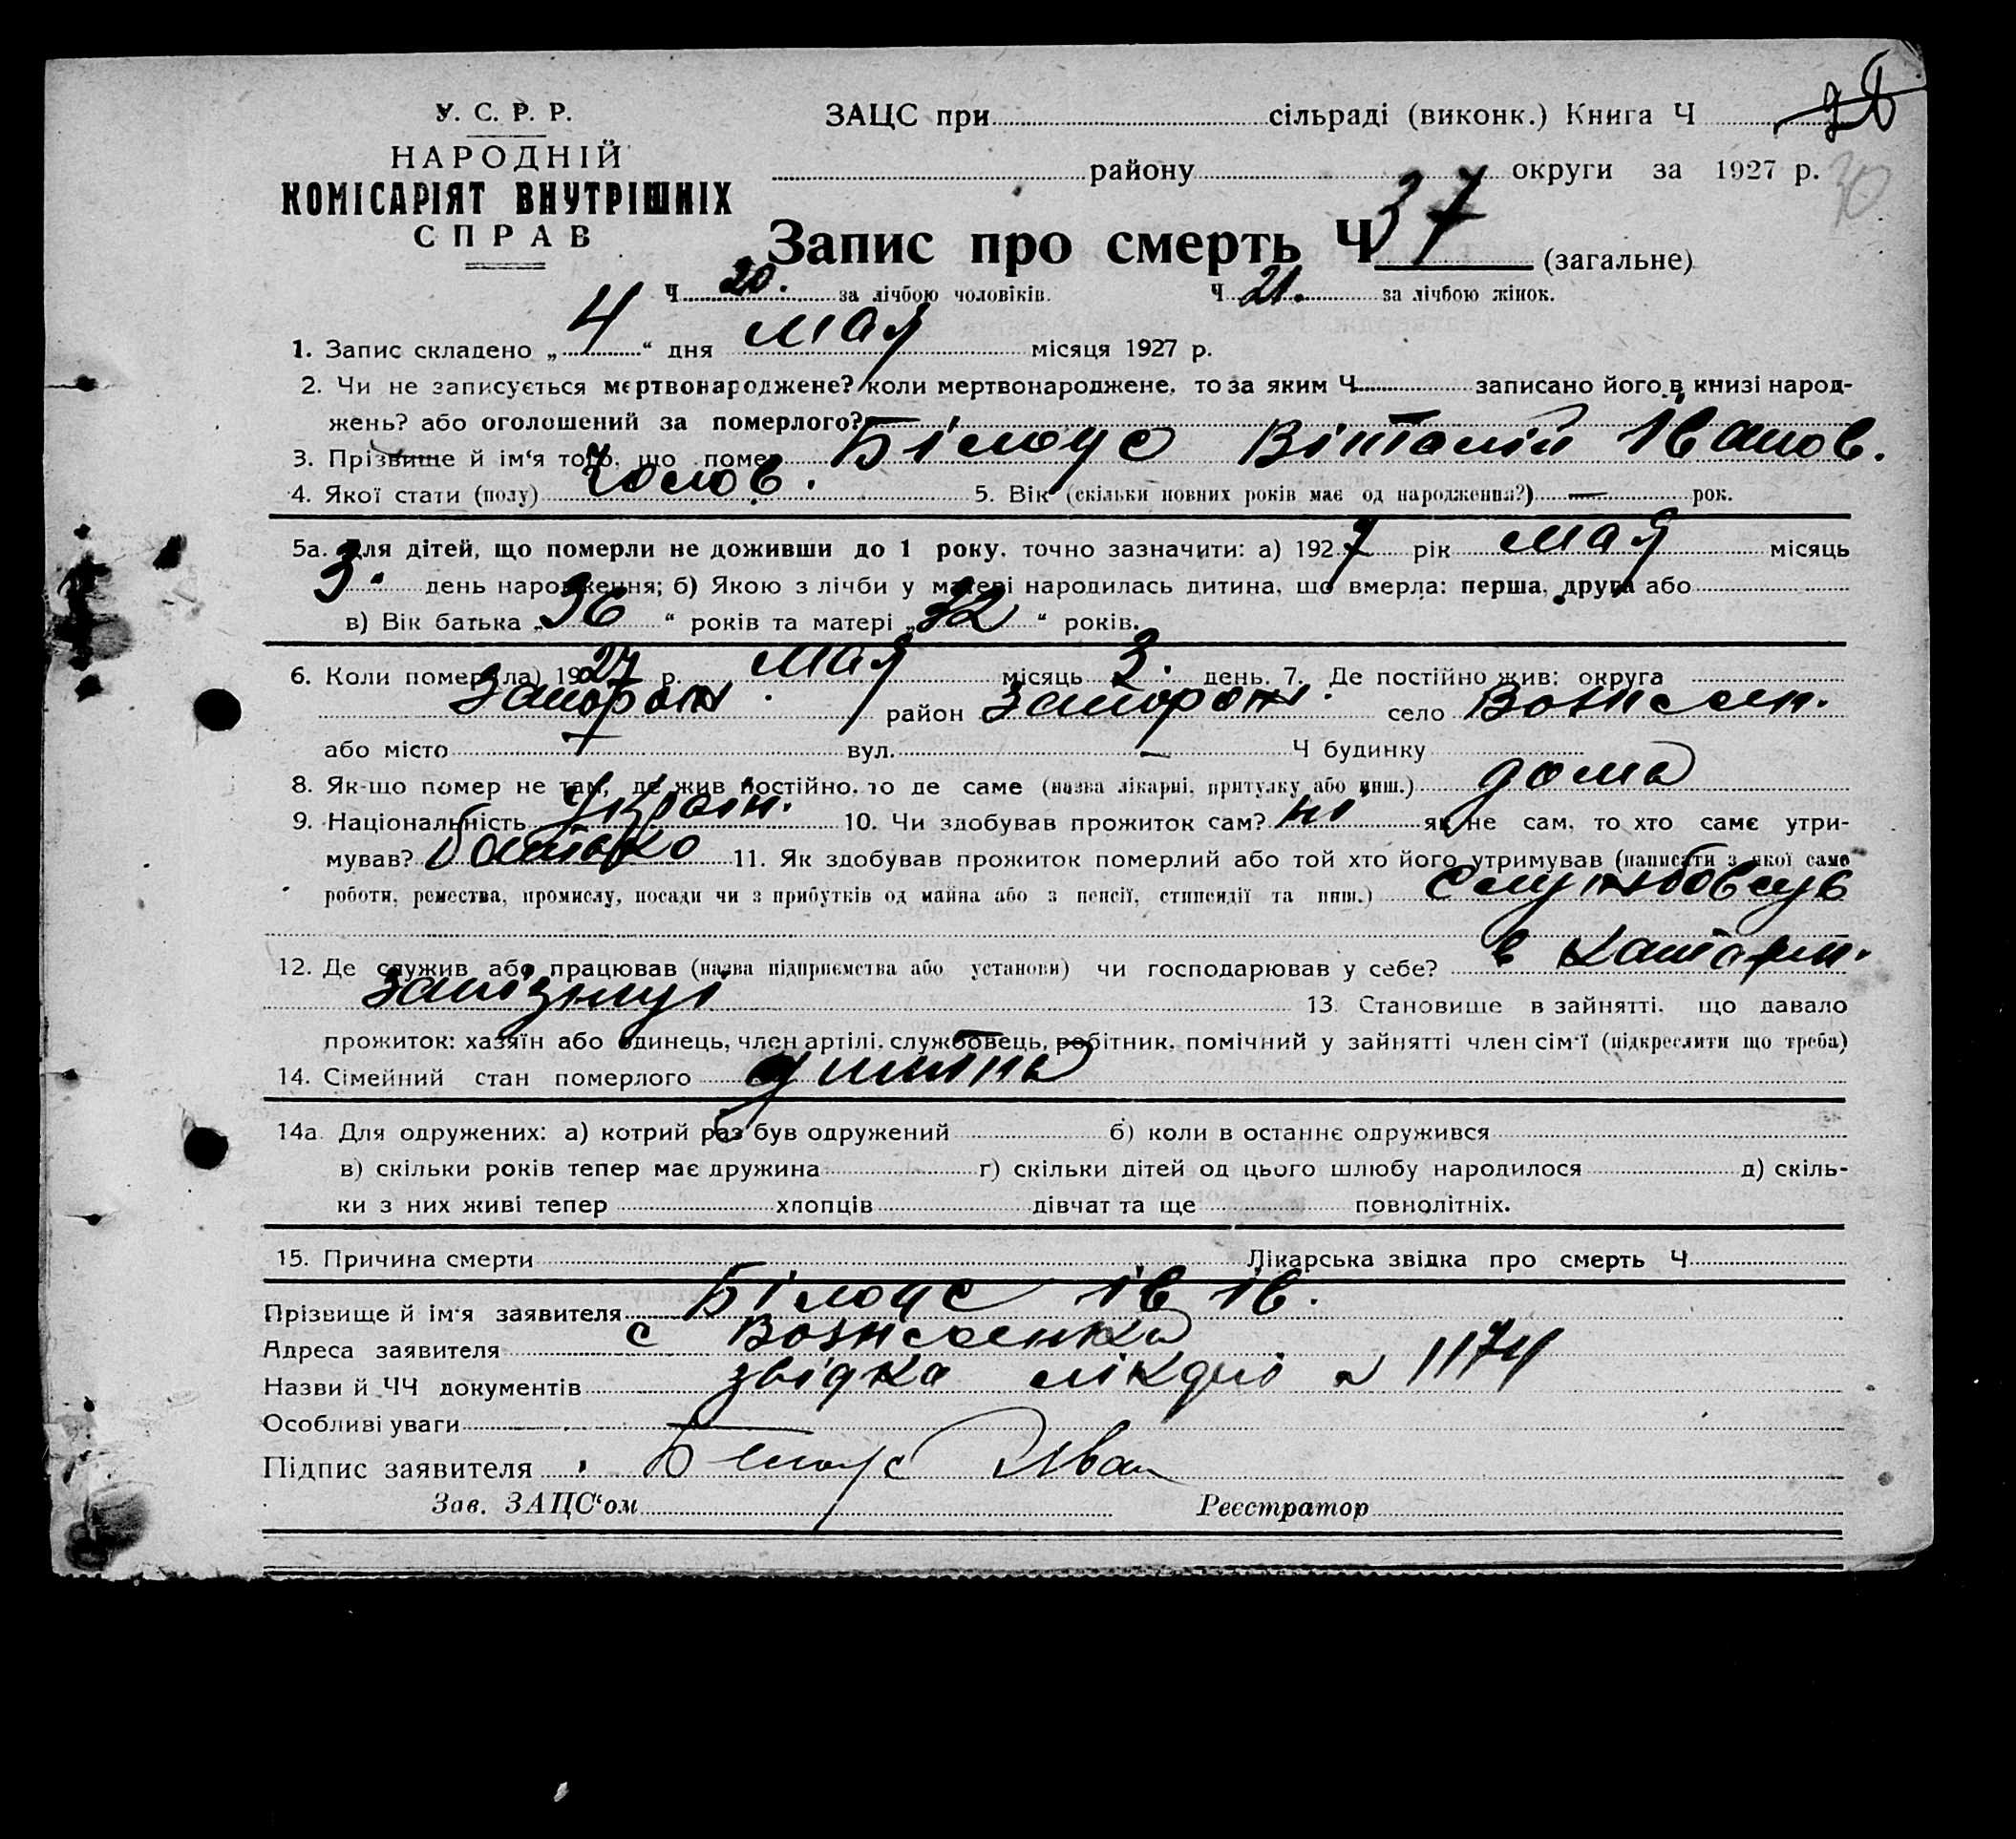 У. С. Р. Р.
НАРОДНІЙ
КОМІСАРІЯТ ВНУТРІШНІХ
СПРАВ
ЗАЦС при сільраді (виконк.) Книга Ч
району округи за 1927 р. 30
Запис про смерть Ч 37 (загальне)
Ч 20. за лічбою чоловіків. Ч 21. за лічбою жінок.
1. Запис складено „4“ дня мая місяця 1927 р.
2. Чи не записується мертвонароджене? коли мертвонароджене, то за яким Ч записано його в книзі народ-
жень? або оголошений за померлого?
3. Прізвище й ім‘я того, що помер Білоус Віталій Іванов.
4. Якої стати (полу) Чолов. 5. Вік (скільки повних років має од народження?) — рок.
5а. Для дітей, що померли не доживши до 1 року, точно зазначити: а) 1927 рік мая місяць
3. день народження; б) Якою з лічби у матері народилась дитина, що вмерла: перша, друга або
в) Вік батька „36“ років та матері „32“ років.
6. Коли помер(ла) 1927 р. мая місяць 3. день. 7. Де постійно жив: округа
Запорож. район Запорож. село Вознесен.
або місто вул. — Ч будинку
8. Як-що помер не там, де жив постійно, то де саме (назва лікарні, притулку або инш.) дома
9. Національність Україн. 10. Чи здобував прожиток сам? ні як не сам, то хто саме утри-
мував? батько 11. Як здобував прожиток померлий або той хто його утримував (написати з якої саме
роботи, ремества, промислу, посади чи з прибутків од майна або з пенсії, стипендії та инш.) Службовець
12. Де служив або працював (назва підприємства або установи) чи господарював у себе? в
13. Становище в зайнятті, що давало
прожиток: хазяїн або одинець, член артілі, службовець, робітник, помічний у зайнятті член сім‘ї (підкреслити що треба)
14. Сімейний стан померлого дитина
14а. Для одружених: а) котрий раз був одружений б) коли в останнє одружився
в) скільки років тепер має дружина г) скільки дітей од цього шлюбу народилося д) скіль-
ки з них живі тепер хлопців дівчат та ще повнолітніх.
15. Причина смерти Лікарська звідка про смерть Ч
Прізвище й ім‘я заявителя Білоус Ів Ів.
Адреса заявителя с Вознесенка
Назви й ЧЧ документів звідка 1174
Особливі уваги —
Підпис заявителя Белоус Иван
Зав. ЗАЦС‘ом Реєстратор